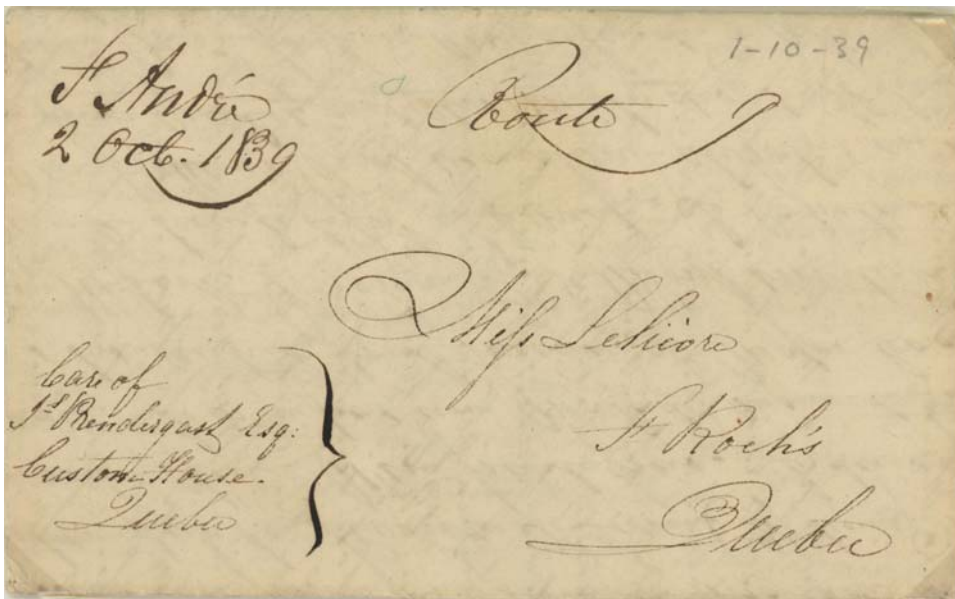 St André
2 Oct. 1839
1-10-39
Miss Lelièvre
St Roch's
Quebec
Care of
Js Prendergast Esq:
Custom House.
Quebec